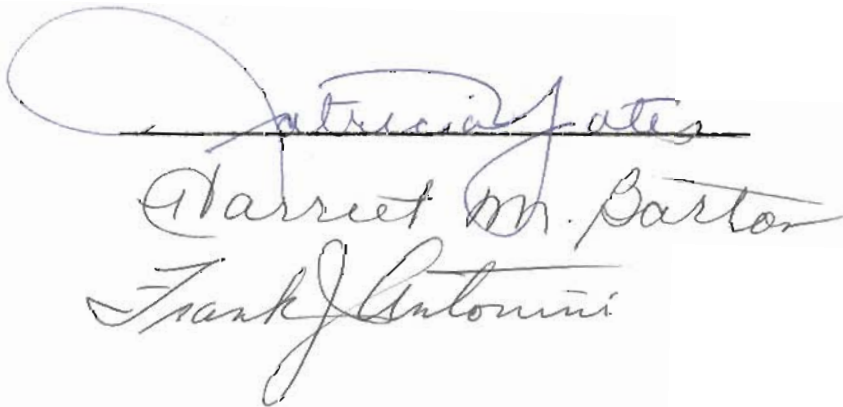 Patricia Yates
Harriet M. Barton
Frank J Antonini